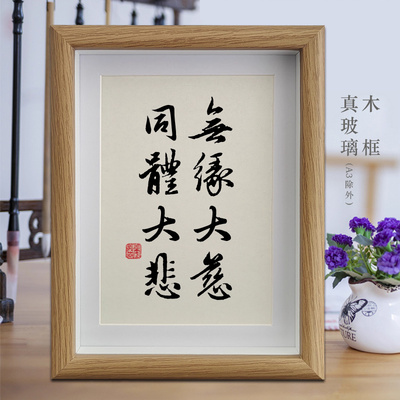 無緣大慈
同體大悲
木框
真玻璃
(A3除外)